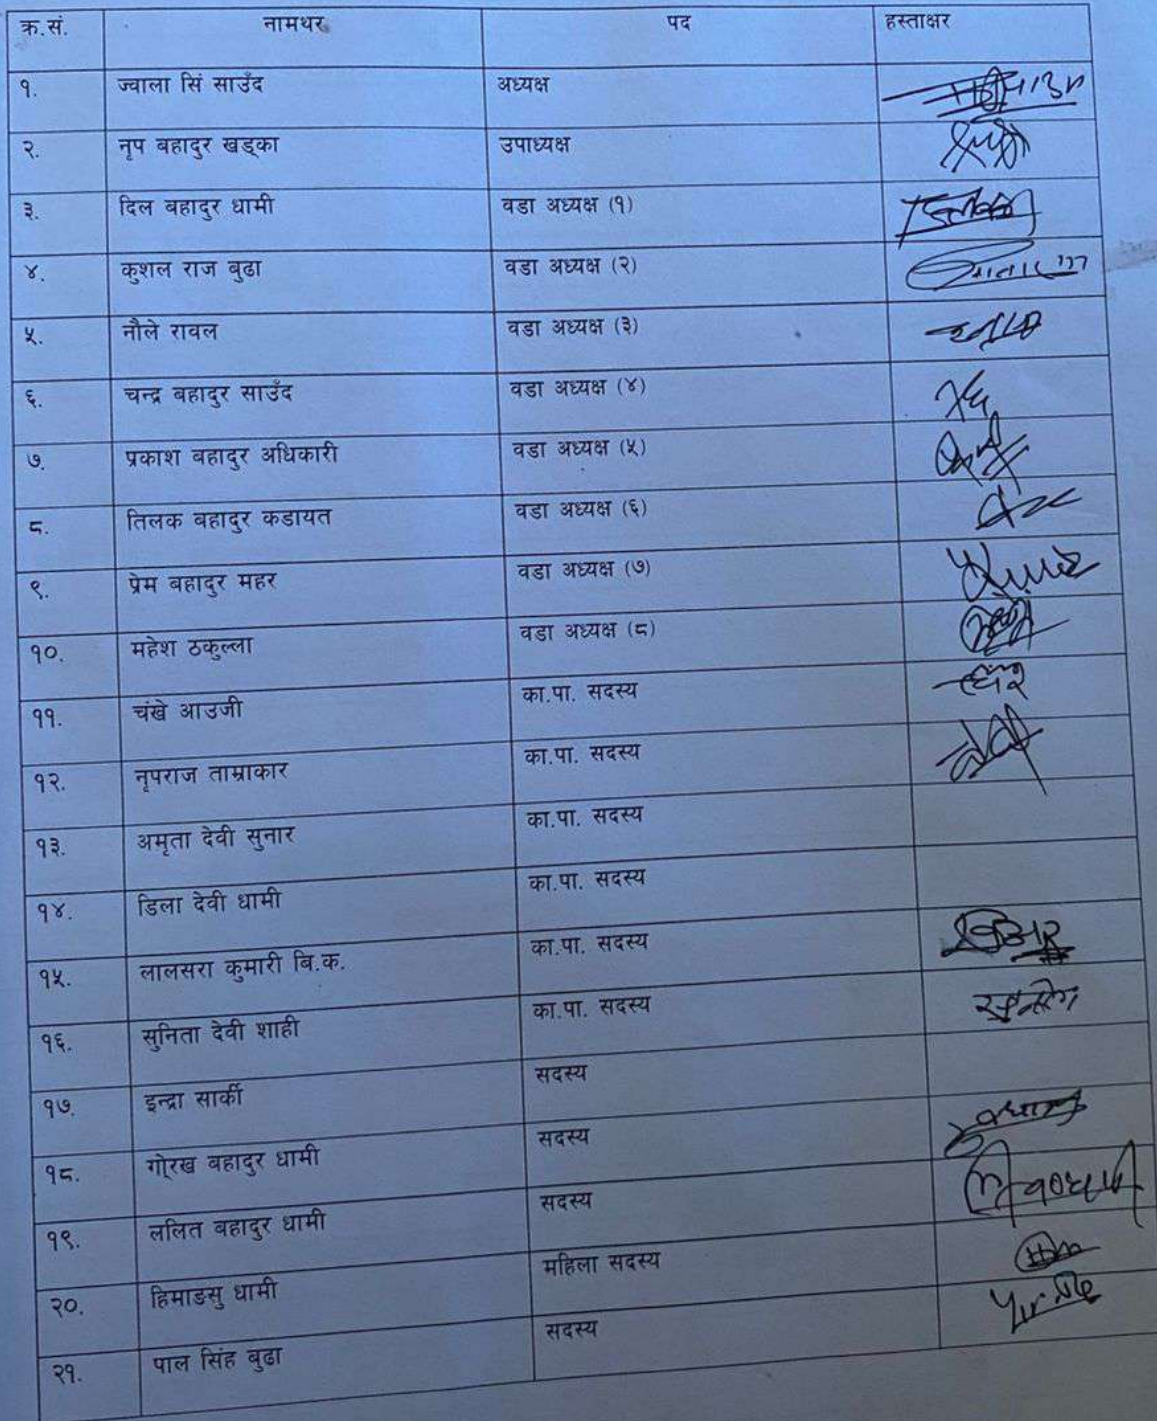 क्र.सं. नामथर पद हस्ताक्षर
१. ज्वाला सिं साउँद अध्यक्ष
२. नृप बहादुर खड्का उपाध्यक्ष
३. दिल बहादुर धामी वडा अध्यक्ष (१)
४. कुशल राज बुढा वडा अध्यक्ष (२)
५. नौले रावल वडा अध्यक्ष (३)
६. चन्द्र बहादुर साउँद वडा अध्यक्ष (४)
७. प्रकाश बहादुर अधिकारी वडा अध्यक्ष (५)
८. तिलक बहादुर कडायत वडा अध्यक्ष (६)
९. प्रेम बहादुर महर वडा अध्यक्ष (७)
१०. महेश ठकुल्ला वडा अध्यक्ष (८)
११. चंखे आउजी का.पा. सदस्य
१२. नृपराज ताम्राकार का.पा. सदस्य
१३. अमृता देवी सुनार का.पा. सदस्य
१४. डिला देवी धामी का.पा. सदस्य
१५. लालसरा कुमारी बि.क. का.पा. सदस्य
१६. सुनिता देवी शाही का.पा. सदस्य
१७. इन्द्रा सार्की सदस्य
१८. गोरख बहादुर धामी सदस्य
१९. ललित बहादुर धामी सदस्य
२०. हिमाडसु धामी महिला सदस्य
२१. पाल सिंह बुढा सदस्य